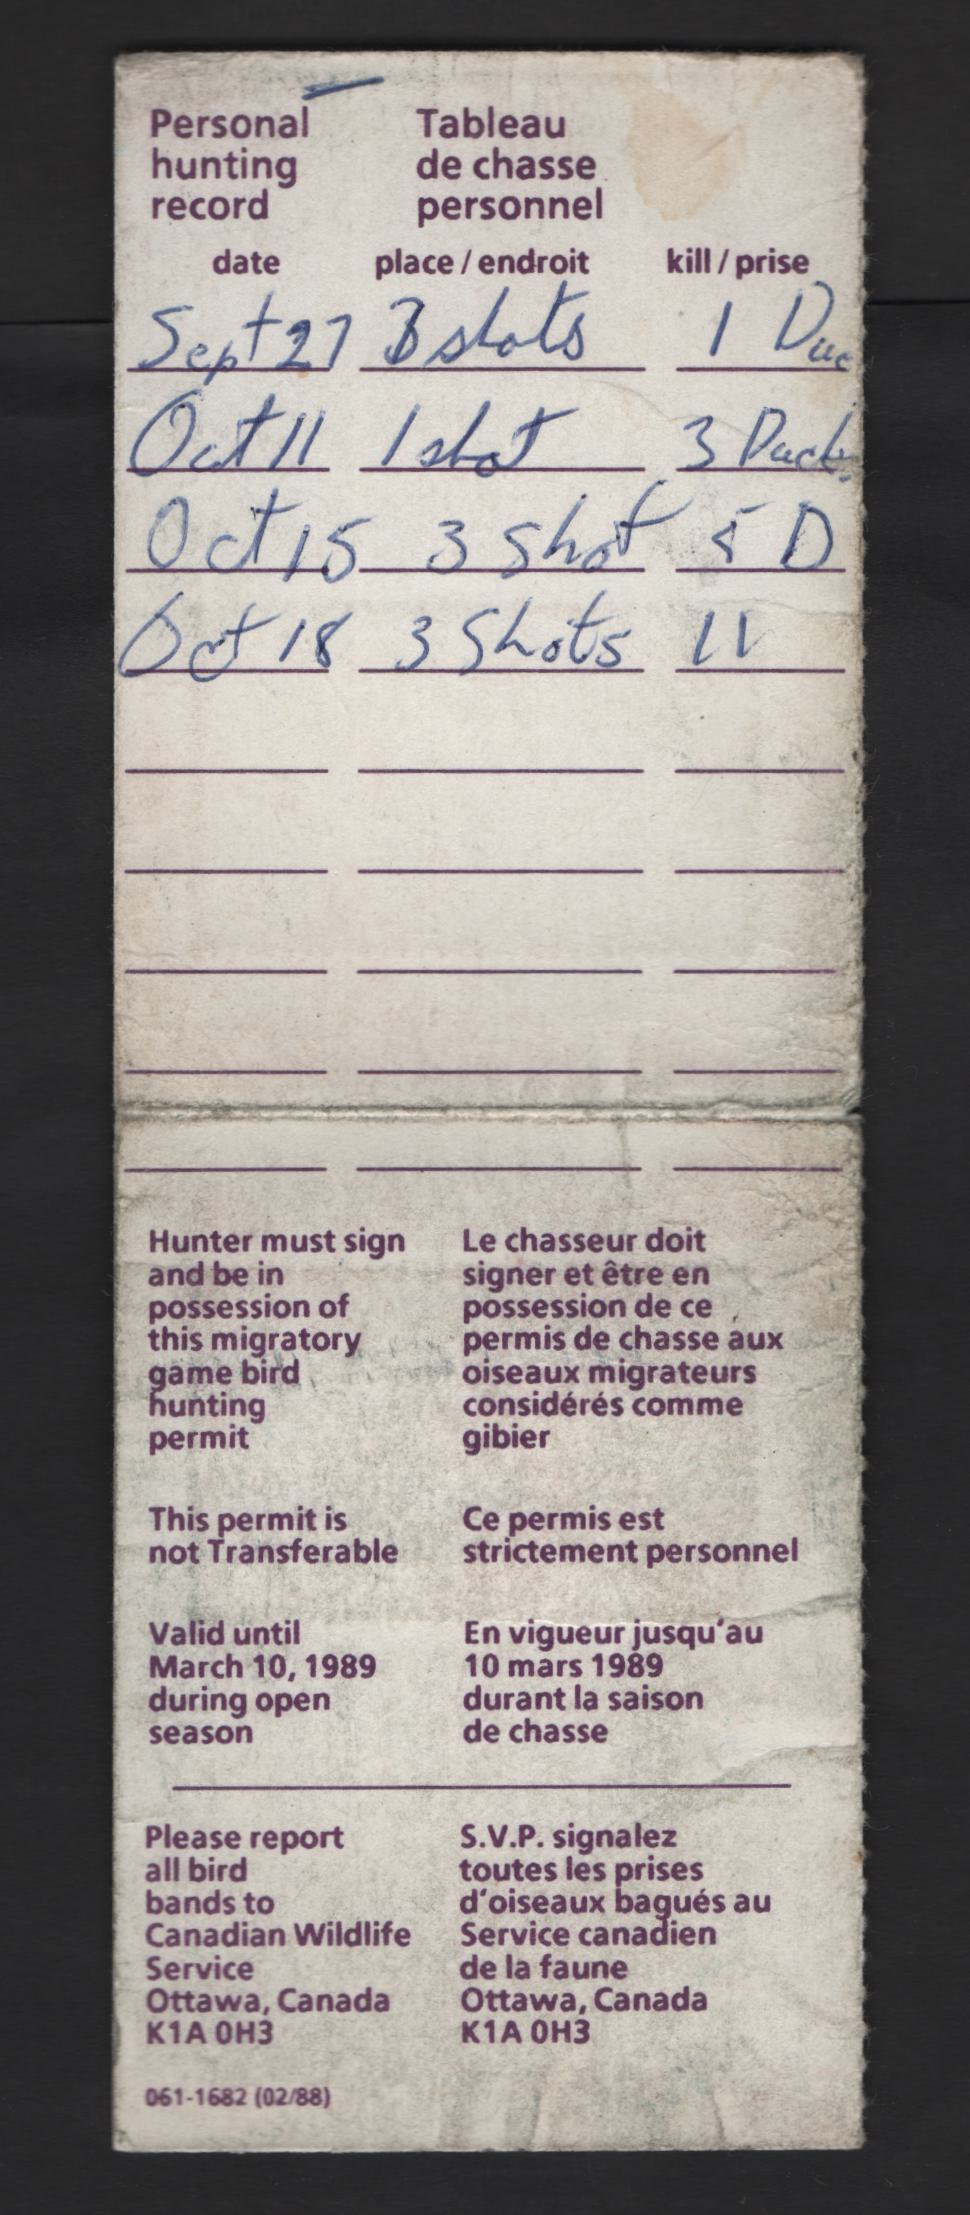 Personal
hunting
record
Tableau
de chasse
personnel
date place / endroit kill / prise
Sept 27 3 shots 1 Duc
Oct 11 1 shot 3 Ducks
Oct 15 3 Shot 5 D
Oct 18 3 Shots 11
Hunter must sign
and be in
possession of
this migratory
game bird
hunting
permit
Le chasseur doit
signer et être en
possession de ce
permis de chasse aux
oiseaux migrateurs
considérés comme
gibier
This permit is
not Transferable
Ce permis est
strictement personnel
Valid until
March 10, 1989
during open
season
En vigueur jusqu'au
10 mars 1989
durant la saison
de chasse
Please report
all bird
bands to
Canadian Wildlife
Service
Ottawa, Canada
K1A 0H3
S.V.P. signalez
toutes les prises
d'oiseaux bagués au
Service canadien
de la faune
Ottawa, Canada
K1A 0H3
061-1682 (02/88)